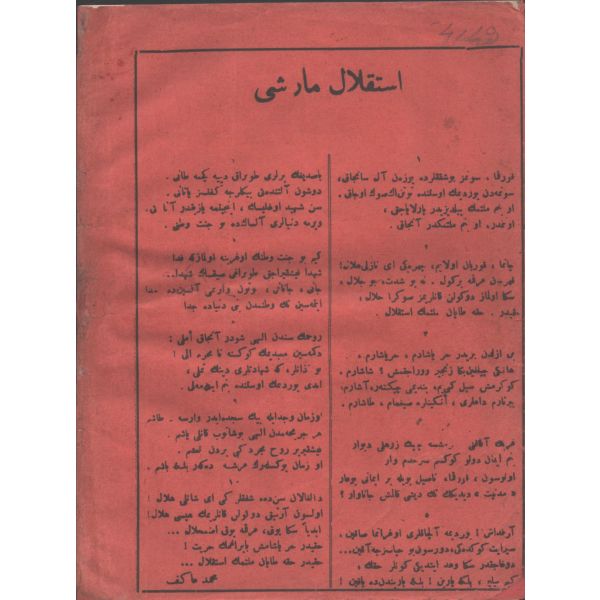 استقلال مارشی
١
قورقما ، سونمز بو شفقلرده یوزەن آل سانجاق ،
سونمەدن یوردیمك اوستنده توتن اڭ صوك اوجاق .
او بنم ملتمك ییلدیزیدر پارلایاجق ،
او بنمدر ، او بنم ملتمكدر آنجاق .
٢
چاتما ، قوربان اولایم ، چهرەكی ای نازلی هلال !
قهرمان عرقمه بر گول . نه بو شدت ، بو جلال ،
سكا اولماز دوكولن قانلریمز سوكرا حلال ،
حقیدر . حقه طاپان ملتمك استقلال .
٣
بن ازلدن بریدر حر یاشادم ، حر یاشارم .
هانكی چیلغین بكا زنجیر ووراجقمش ؟ شاشارم .
كوكرەمش سیل كبی‌یم ، بندیمی چیكنەر ، آشارم ،
ییرتارم داغلری ، انگینلره صیغمام ، طاشارم .
٤
غربك آفاقنی صارمشسه چلیك زرهلی دیوار
بنم ایمان دولو كوكسم كبی سرحدم وار
اولوسون ، قورقما ، ناصیل بویله بر ایمانی بوغار
« مدنیت » دیدیكك تك دیشی قالمش جاناوار ؟
٥
آرقداش ! یوردیمه آلچاقلری اوغراتما صاقین ،
سپر ایت كوكدەكی ، دورسون بو حیاسزجه آقین ...
دوغاجقدر سكا وعد ایتدیكی كونلر حقك ،
كیم بیلیر ، بلكه یارین ! بلكه یاریندن ده یاقین !
باصدیغك یرلری طوپراق دییه یكمه ، طانی ،
دوشون آلتندەكی بیكلرجه كفنسز یاتانی .
سن شهید اوغلیسك ، اینجیتمه یازیقدر آتا كی ،
ویرمه دنیالری آلساكده بو جنت وطنی .
كیم بو جنت وطنك اوغرینه اولمازكه فدا
شهدا فیشقیراجق طوپراغی صیقسەك شهدا ..
جانی ، جانانی ، بوتون واریمی آلسین‌ده خدا
ایتمەسین تك وطنمدن بنی دنیاده جدا
روحمك سندن الهی شودر آنجاق أملی :
دكمەسین معبدیمك كوكسنه نامحرم الی !
بو اذانلر ، كه شهادتلری دینك تملی ،
ابدی یوردیمك اوستنده بنم ایكلەملی .
او زمان وجدایله بیك سجده‌ایدر وارسه - طاشم
هر جریحه‌مدن الهی بوشانوب قانلی یاشم .
فیشقیریر روح مجرد كبی یردن نعشم .
او زمان یوكسلەرك عرشه دكەر بلكه باشم .
١٠
دالغالان سن‌ده شفقلر كبی ای شانلی هلال !
اولسون آرتیق دوكولن قانلریمك هپسی حلال !
ابدیاً سكا یوق ، عرقمه یوق اضمحلال ...
حقیدر حر یاشامش بایراغمك حریت !
حقیدر حقه طاپان ملتمك استقلال ...
محمد عاكف